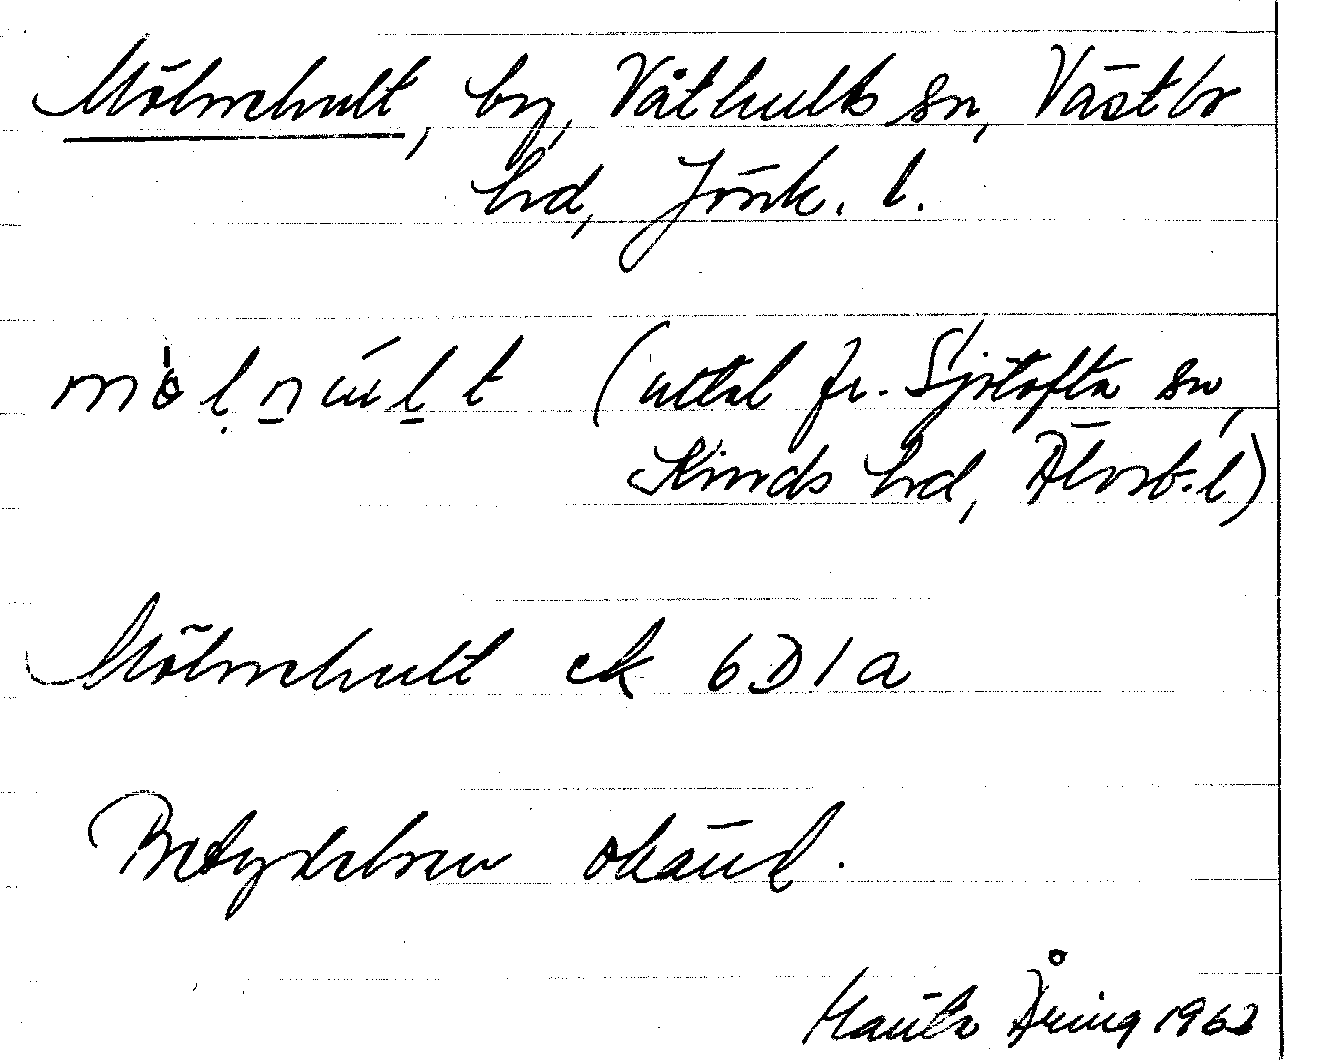 Mölnehult, by, Våthults sn, Västbo
hrd, Jönk. l.
(uttal fr. Sjötofta sn,
Kinds hrd, Älvsb. l)
Mölnehult ek 6D1a
Betydelsen okänd.
Åring 1962